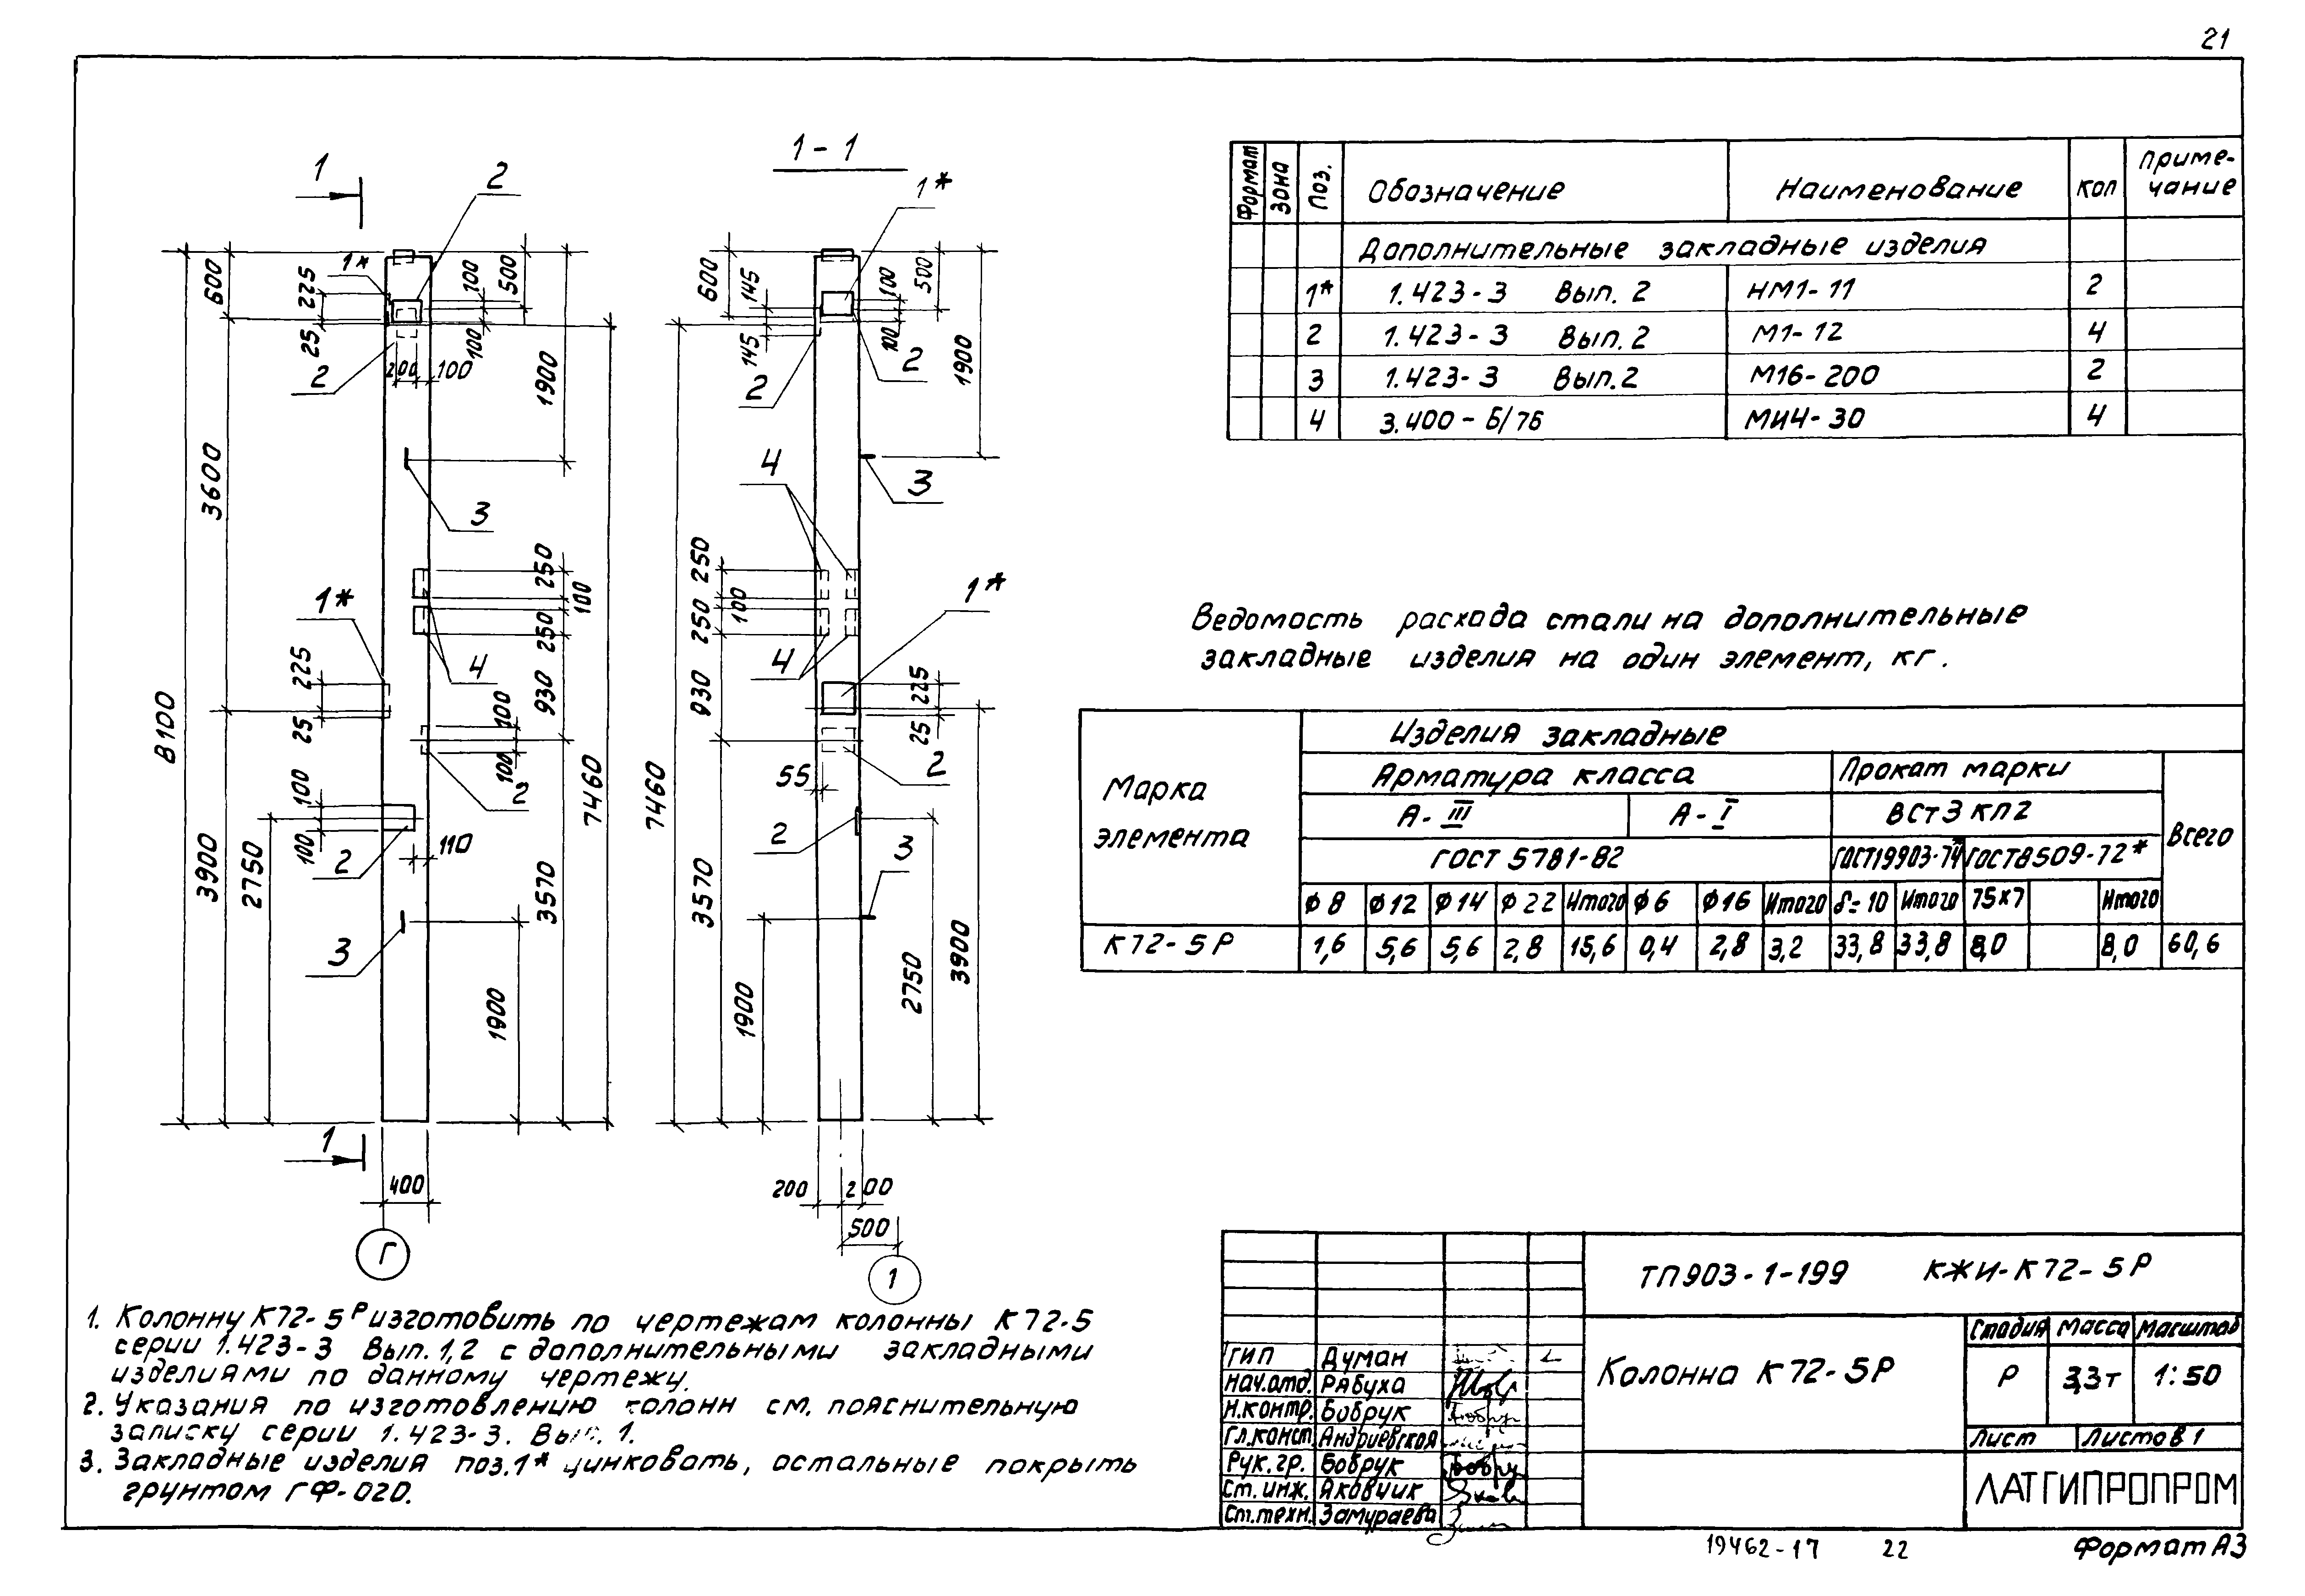 21
1
1-1
2
1*
8100
600
3600
3900
225
25
1*
2
200
100
100
100
500
1900
3
250
100
250
4
930
100
100
2
7460
3570
1*
225
25
100
100
2750
2
110
3
1900
1
400
Г
600
145
145
2
2
100
100
500
1900
3
4
250
100
250
4
930
1*
225
25
2
55
2
3
7460
3570
1900
2750
3900
200
200
500
1
Формат
Зона
Поз.
Обозначение
Наименование
Кол
Приме-
чание
Дополнительные закладные изделия
1* 1.423-3 Вып. 2 НМ1-11 2
2 1.423-3 Вып. 2 М1-12 4
3 1.423-3 Вып. 2 М16-200 2
4 3.400-6/76 МИ4-30 4
Ведомость расхода стали на дополнительные
закладные изделия на один элемент, кг.
Марка
элемента
Изделия закладные
Арматура класса
Прокат марки
А-III
А-I
ВСт3 кп2
Всего
ГОСТ 5781-82
ГОСТ19903-74*
ГОСТ8509-72*
ϕ8 ϕ12 ϕ14 ϕ22 Итого ϕ6 ϕ16 Итого δ=10 Итого 75×7 Итого
К72-5Р 1,6 5,6 5,6 2,8 15,6 0,4 2,8 3,2 33,8 33,8 8,0 8,0 60,6
1. Колонну К72-5Р изготовить по чертежам колонны К72-5
серии 1.423-3 Вып. 1,2 с дополнительными закладными
изделиями по данному чертежу.
2. Указания по изготовлению колонн см. пояснительную
записку серии 1.423-3. Вып. 1.
3. Закладные изделия поз.1* цинковать, остальные покрыть
грунтом ГФ-020.
ТП903-1-199 КЖИ-К72-5Р
Колонна К72-5Р
Стадия Масса Масштаб
Р 3,3т 1:50
Лист Листов 1
ЛАТГИПРОПРОМ
ГИП Думан
Нач.отд. Рябуха
Н.контр. Бобрук
Гл.конст. Андриевская
Рук.гр. Бобрук
Ст.инж. Яковчик
Ст.техн. Замураева
19462-17 22
Формат А3